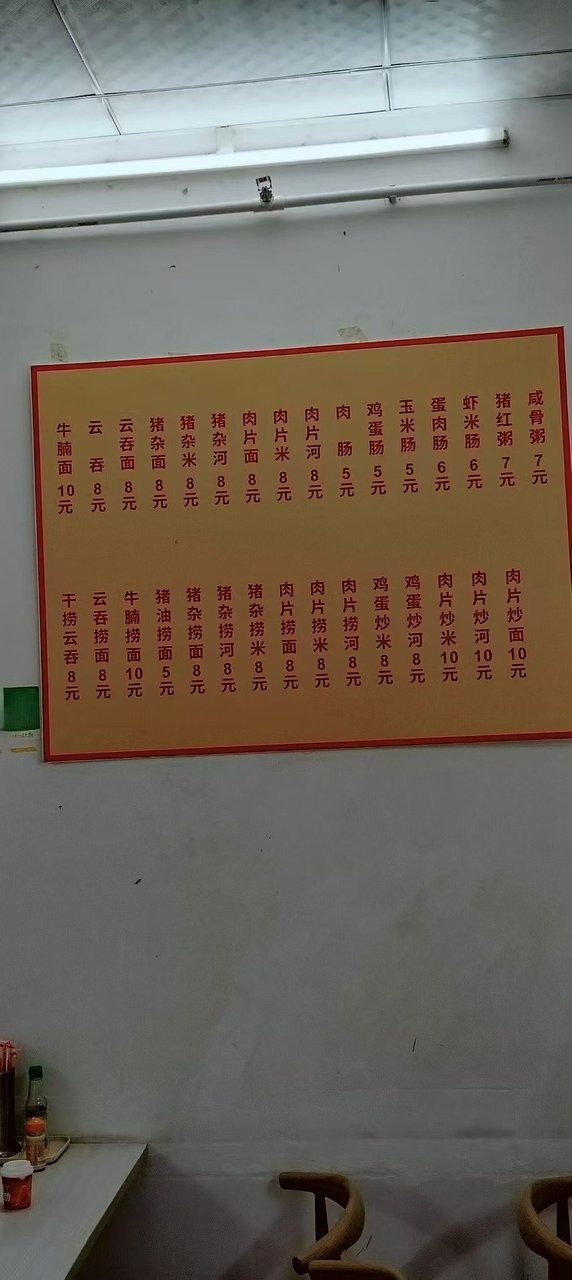 牛腩面10元
云吞8元
云吞面8元
猪杂面8元
猪杂米8元
猪杂河8元
肉片面8元
肉片米8元
肉片河8元
肉肠5元
鸡蛋肠5元
玉米肠5元
蛋肉肠6元
虾米肠6元
猪红粥7元
咸骨粥7元
干捞云吞8元
云吞捞面8元
牛腩捞面10元
猪油捞面5元
猪杂捞面8元
猪杂捞河8元
猪杂捞米8元
肉片捞面8元
肉片捞米8元
肉片捞河8元
鸡蛋炒米8元
鸡蛋炒河8元
肉片炒米10元
肉片炒河10元
肉片炒面10元